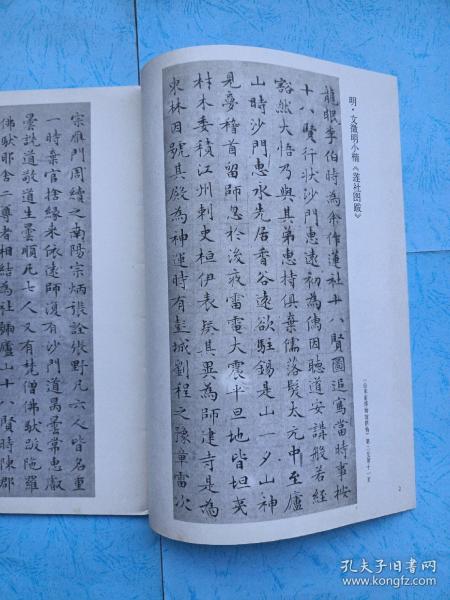 明·文徵明小楷《莲社图跋》
龍眠李伯時為余作蓮社十八賢圖追寫當時事按
十八賢行狀沙門惠遠初為儒因聽道安講般若經
豁然大悟乃與其弟惠持俱棄儒落髮太元中至廬
山時沙門惠永先居香谷遠欲駐錫是山一夕山神
見夢稽首留師忽於後夜雷電大震平旦地皆坦夷
材木委積江州刺史桓伊表其異為師建寺是為
東林因號其殿為神運時有彭城劉程之豫章雷次
2
宗雁門周續之南陽宗炳張詮張野凡六人皆名重
一時棄官捨緣來依遠師復有沙門道昺曇常惠叡
曇詵道敬道生曇順凡七人又有梵僧佛馱跋陁羅
佛馱耶舍二尊者相結為社號廬山十八賢時陳郡
孔夫子旧书网
www.kongfz.com